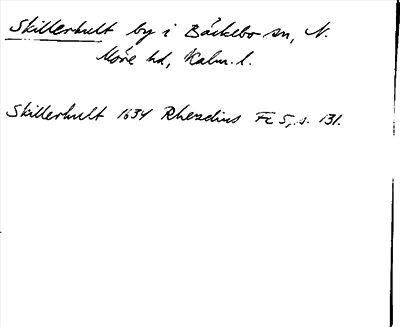 Skillerhult by i Bäckebo sn, N.
Möre hd, Kalm. l.
Skillerhult 1634 Rhezelius Fc 5, s. 131.